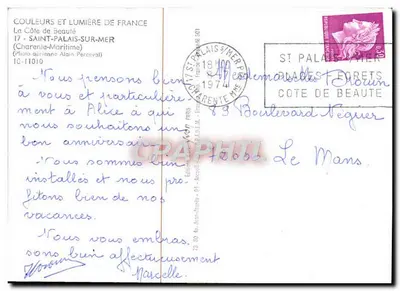 COULEURS ET LUMIÈRE DE FRANCE
La Côte de Beauté
17 - SAINT-PALAIS-SUR-MER
(Charente-Maritime)
(Photo aérienne Alain Perceval)
1C-11010
Nous pensons bien
à vous et particulière
ment à Alice à qui
nous souhaitons un
bon anniversaire.
Nous sommes bien
installés et nous pro
fitons bien de nos
vacances.
Nous vous embras
sons bien affectueusement
Marcelle
17 ST PALAIS S/MER
18H
1974
CHARENTE MME
ST PALAIS S/MER
PLAGES FORETS
COTE DE BEAUTE
Mesdemoiselles
89 Boulevard Négrier
72000 Le Mans